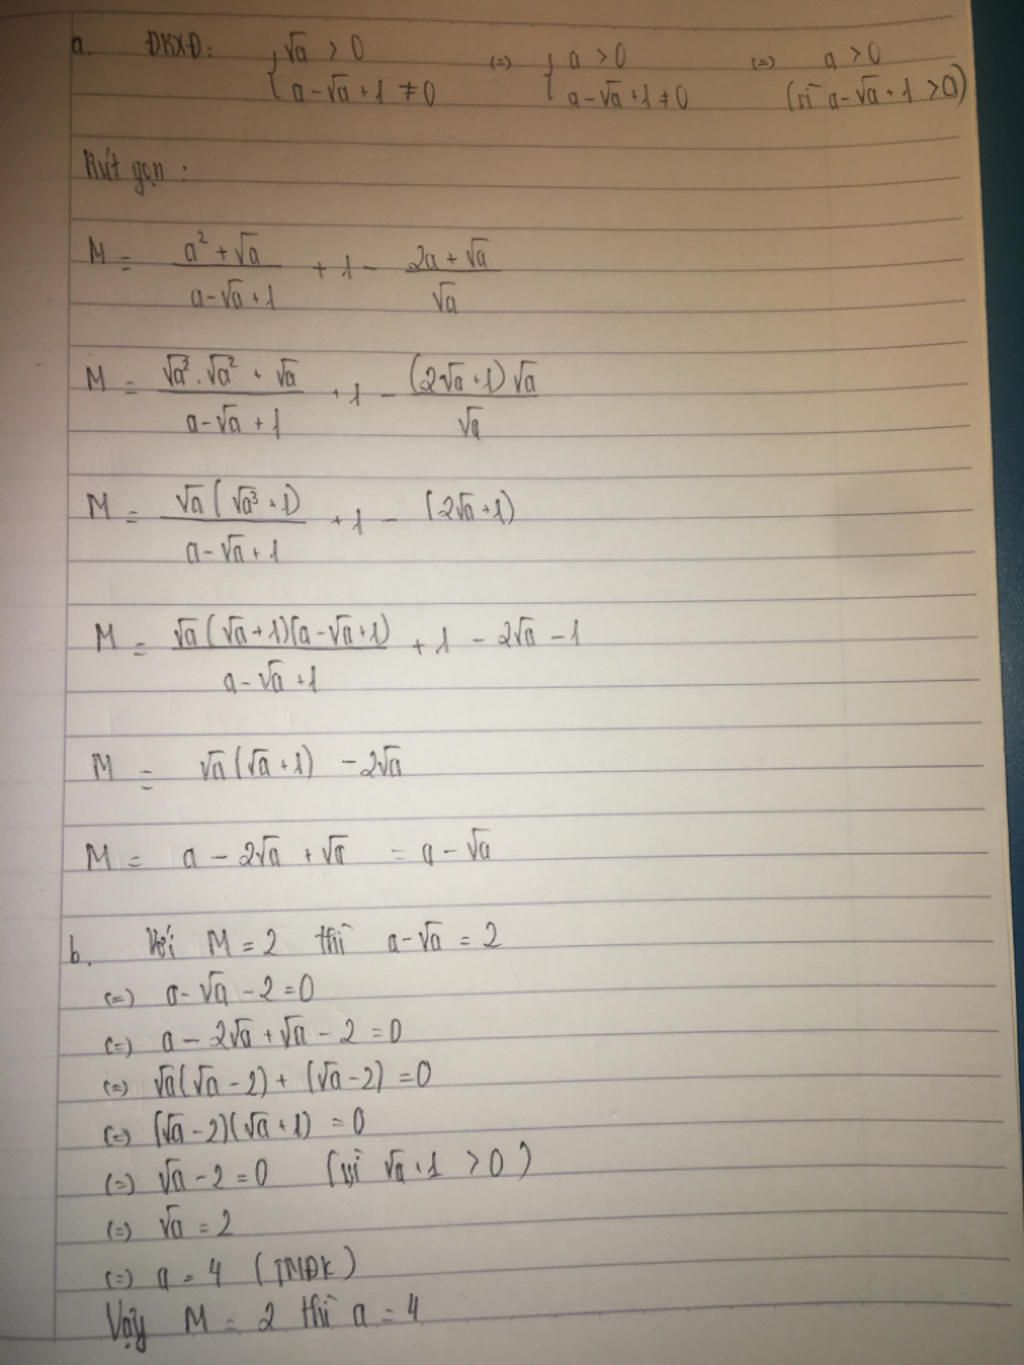 a. ĐKXĐ: { √a > 0 (=) { a > 0 (=) a > 0
{ a - √a + 1 ≠ 0 { a - √a + 1 ≠ 0 (vì a - √a + 1 > 0)
Rút gọn :
M = (a² + √a)/(a - √a + 1) + 1 - (2a + √a)/√a
M = (√a² . √a² + √a)/(a - √a + 1) + 1 - ((2√a + 1)√a)/√a
M = √a(√a³ + 1)/(a - √a + 1) + 1 - (2√a + 1)
M = √a(√a + 1)(a - √a + 1)/(a - √a + 1) + 1 - 2√a - 1
M = √a(√a + 1) - 2√a
M = a - 2√a + √a = a - √a
b. Với M = 2 thì a - √a = 2
(=) a - √a - 2 = 0
(=) a - 2√a + √a - 2 = 0
(=) √a(√a - 2) + (√a - 2) = 0
(=) (√a - 2)(√a + 1) = 0
(=) √a - 2 = 0 (vì √a + 1 > 0)
(=) √a = 2
(=) a = 4 (TMĐK)
Vậy M = 2 thì a = 4